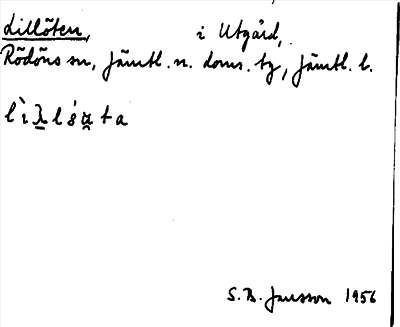 Lillöten, i Utgård,
Rödöns sn, Jämtl. n. doms. tg, Jämtl. l.
S. B. Jansson 1956